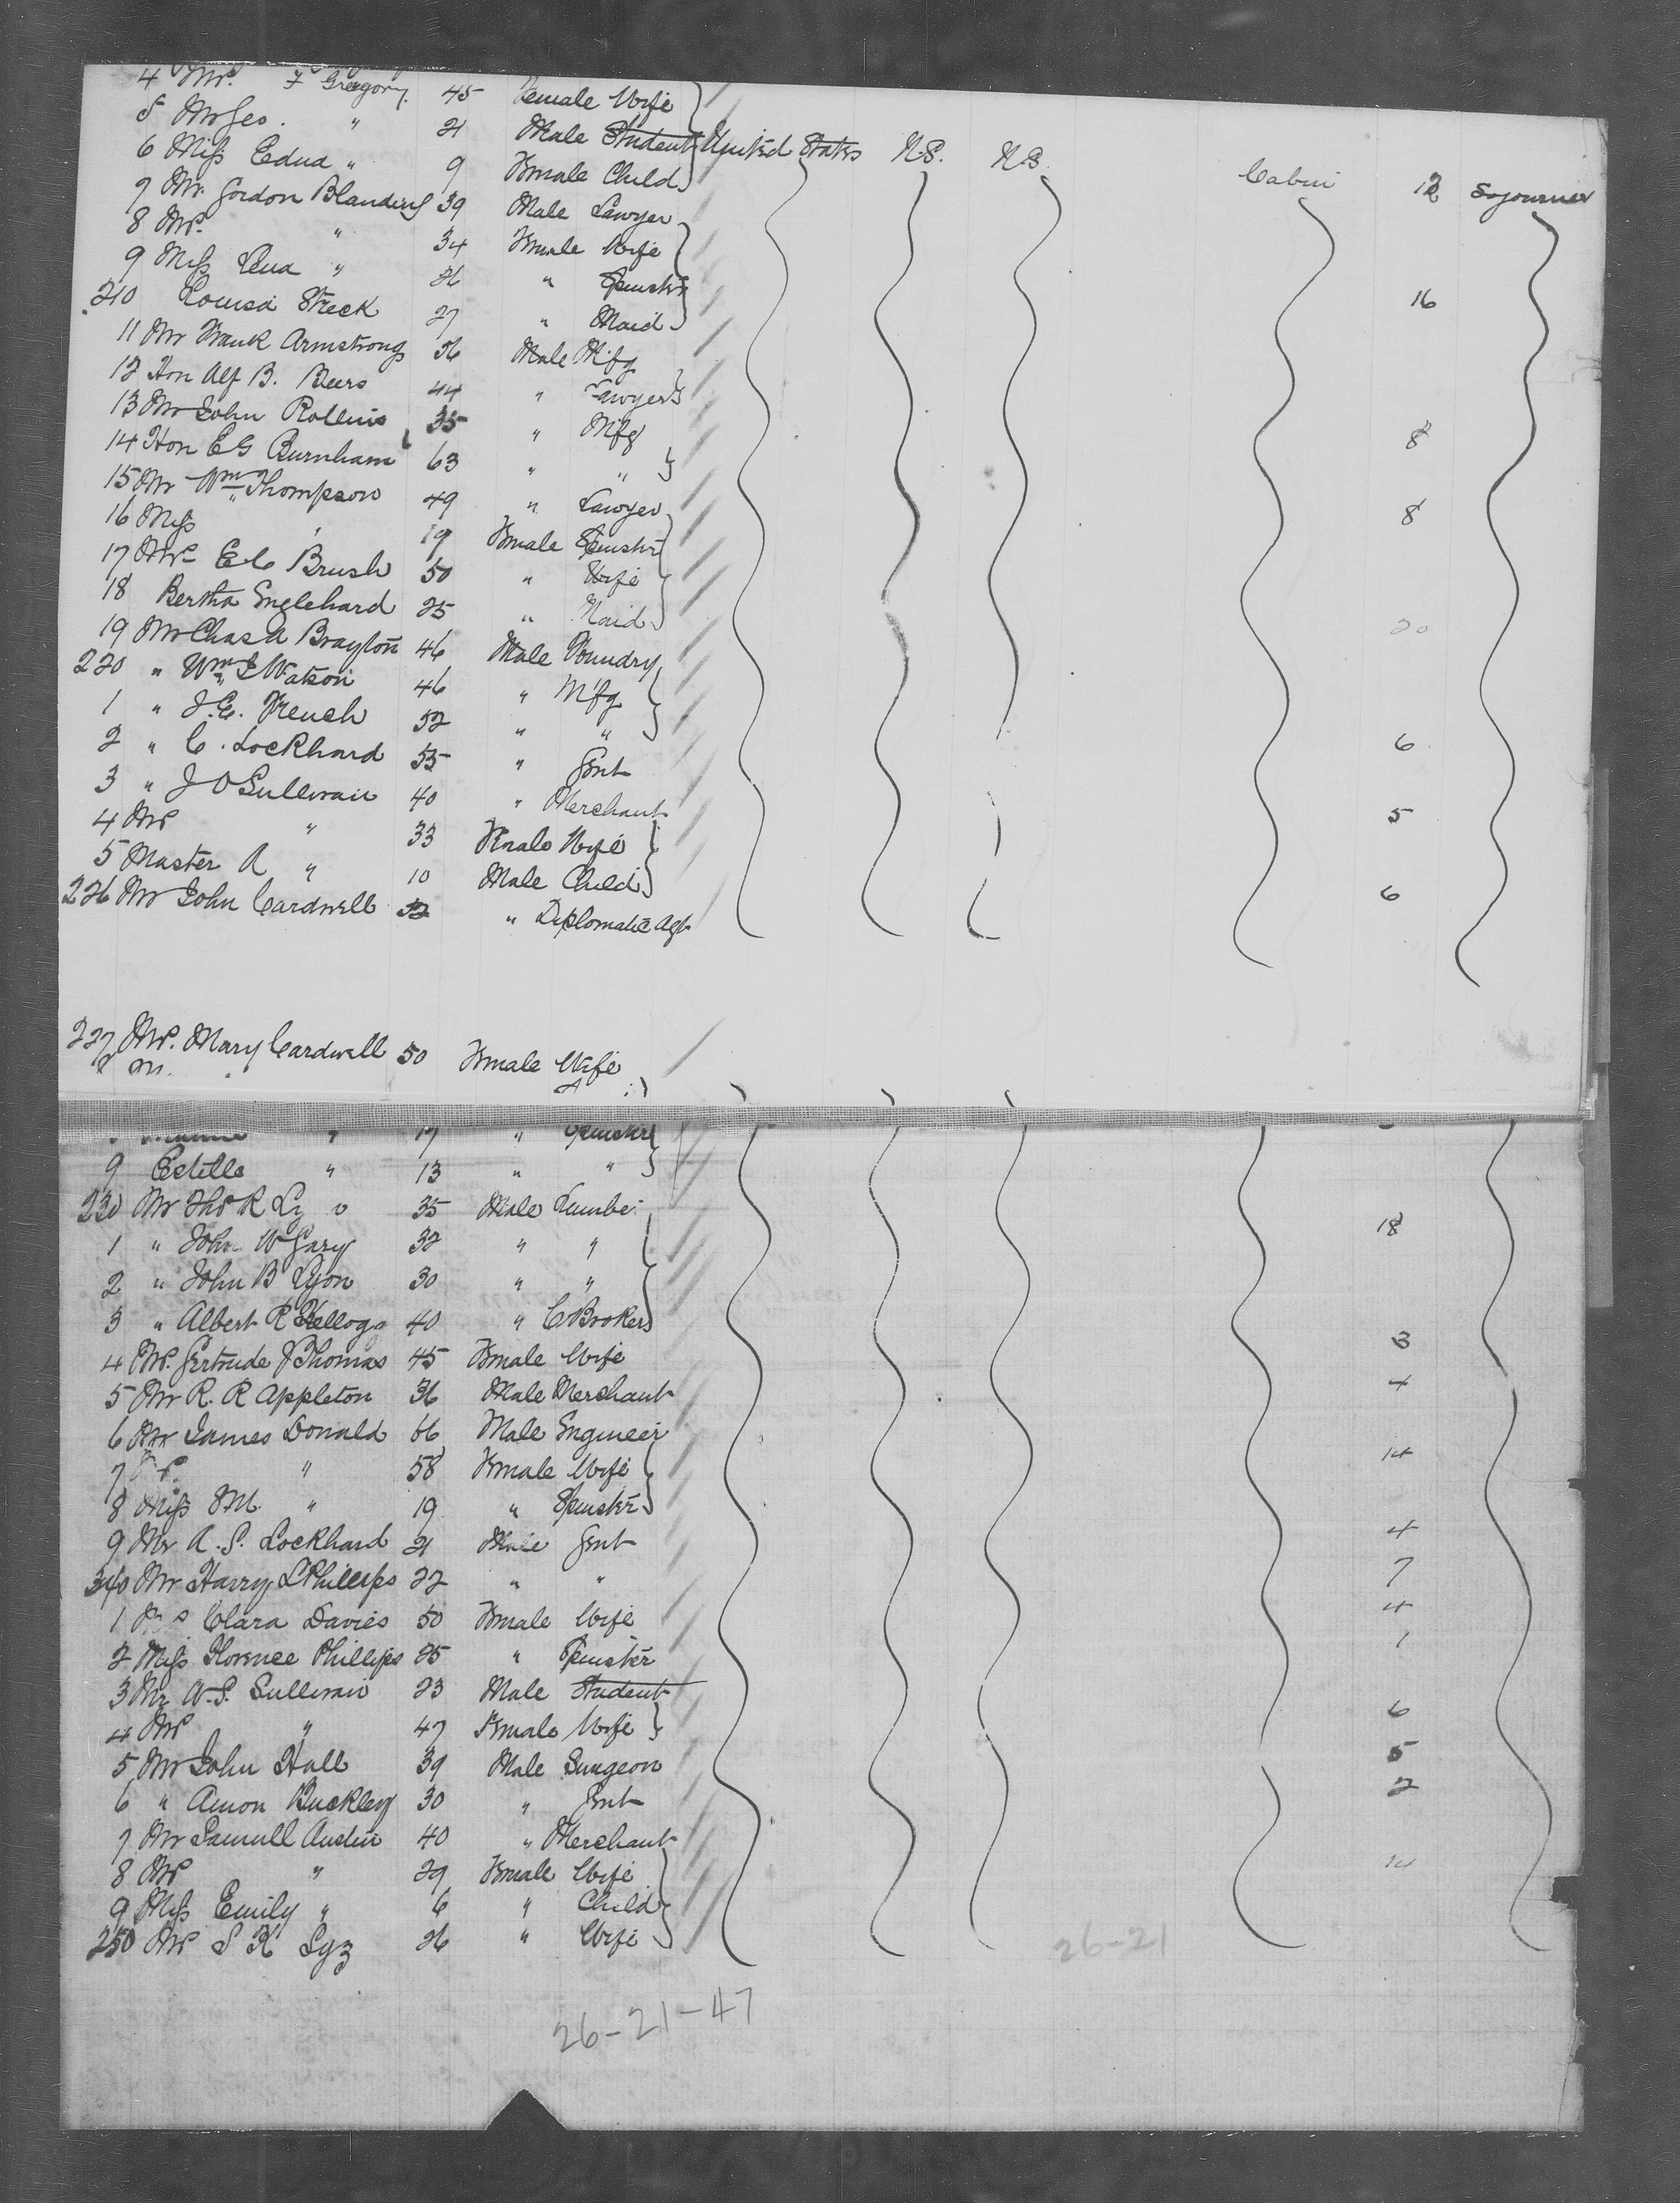 4 Mrs. F Gregory. 45 Female Wife
5 Mr Geo. " 21 Male Student United States U.S. U.S.
6 Miss Edna " 9 Female Child Cabin 12 Sojourner
7 Mr. Gordon Blanding 39 Male Lawyer
8 Mrs. " 34 Female Wife
9 Miss Lena " 26 " Spinster
210 Louisa Streck 27 " Maid 16
11 Mr Frank Armstrong 36 Male Mfg
12 Hon Alf B. Beers 44 " Lawyer
13 Mr John Rollins 35 " Mfg
14 Hon E G Burnham 63 " " 8
15 Mr Wm Thompson 49 " Lawyer
16 Miss " 19 Female Spinster 8
17 Mrs E C Brush 50 " Wife
18 Bertha Englehard 25 " Maid
19 Mr Chas A Brayton 46 Male Foundry 20
220 " Wm Watson 46 " M'fg
1 " J. E. French 52 " "
2 " C. Lockhard 53 " Gent 6
3 " J O Sullivan 40 " Merchant
4 Mrs " 33 Female Wife 5
5 Master A " 10 Male Child
226 Mr John Cardwell 52 " Diplomatic Agt 6
227 Mrs. Mary Cardwell 50 Female Wife
17 " Spinster
9 Estelle " 13 " "
230 Mr Thos R 35 Male
1 " John W Gary 32 " " 18
2 " John B Lyon 30 " "
3 " Albert R Kellogg 40 " C Broker
4 Mrs. Gertrude J Thomas 45 Female Wife 3
5 Mr R. R Appleton 36 Male Merchant 4
6 Mr James Donald 66 Male Engineer
7 " 58 Female Wife 14
8 Miss M. " 19 " Spinster
9 Mr A. S. Lockhard 21 Male Gent 4
340 Mr Harry L Phillips 22 " " 7
1 Mrs Clara Davies 50 Female Wife 4
2 Miss Florence Phillips 25 " Spinster 1
3 Mr A. S. Sullivan 23 Male Student
4 Mrs " 47 Female Wife 6
5 Mr John Hall 39 Male Surgeon 5
6 " Amon Buckley 30 " Gent 2
7 Mr Samuell Austin 40 " Merchant
8 Mrs " 29 Female Wife 14
9 Miss Emily " 6 " Child
250 Mrs S K 26 " Wife
26-21
26-21-47